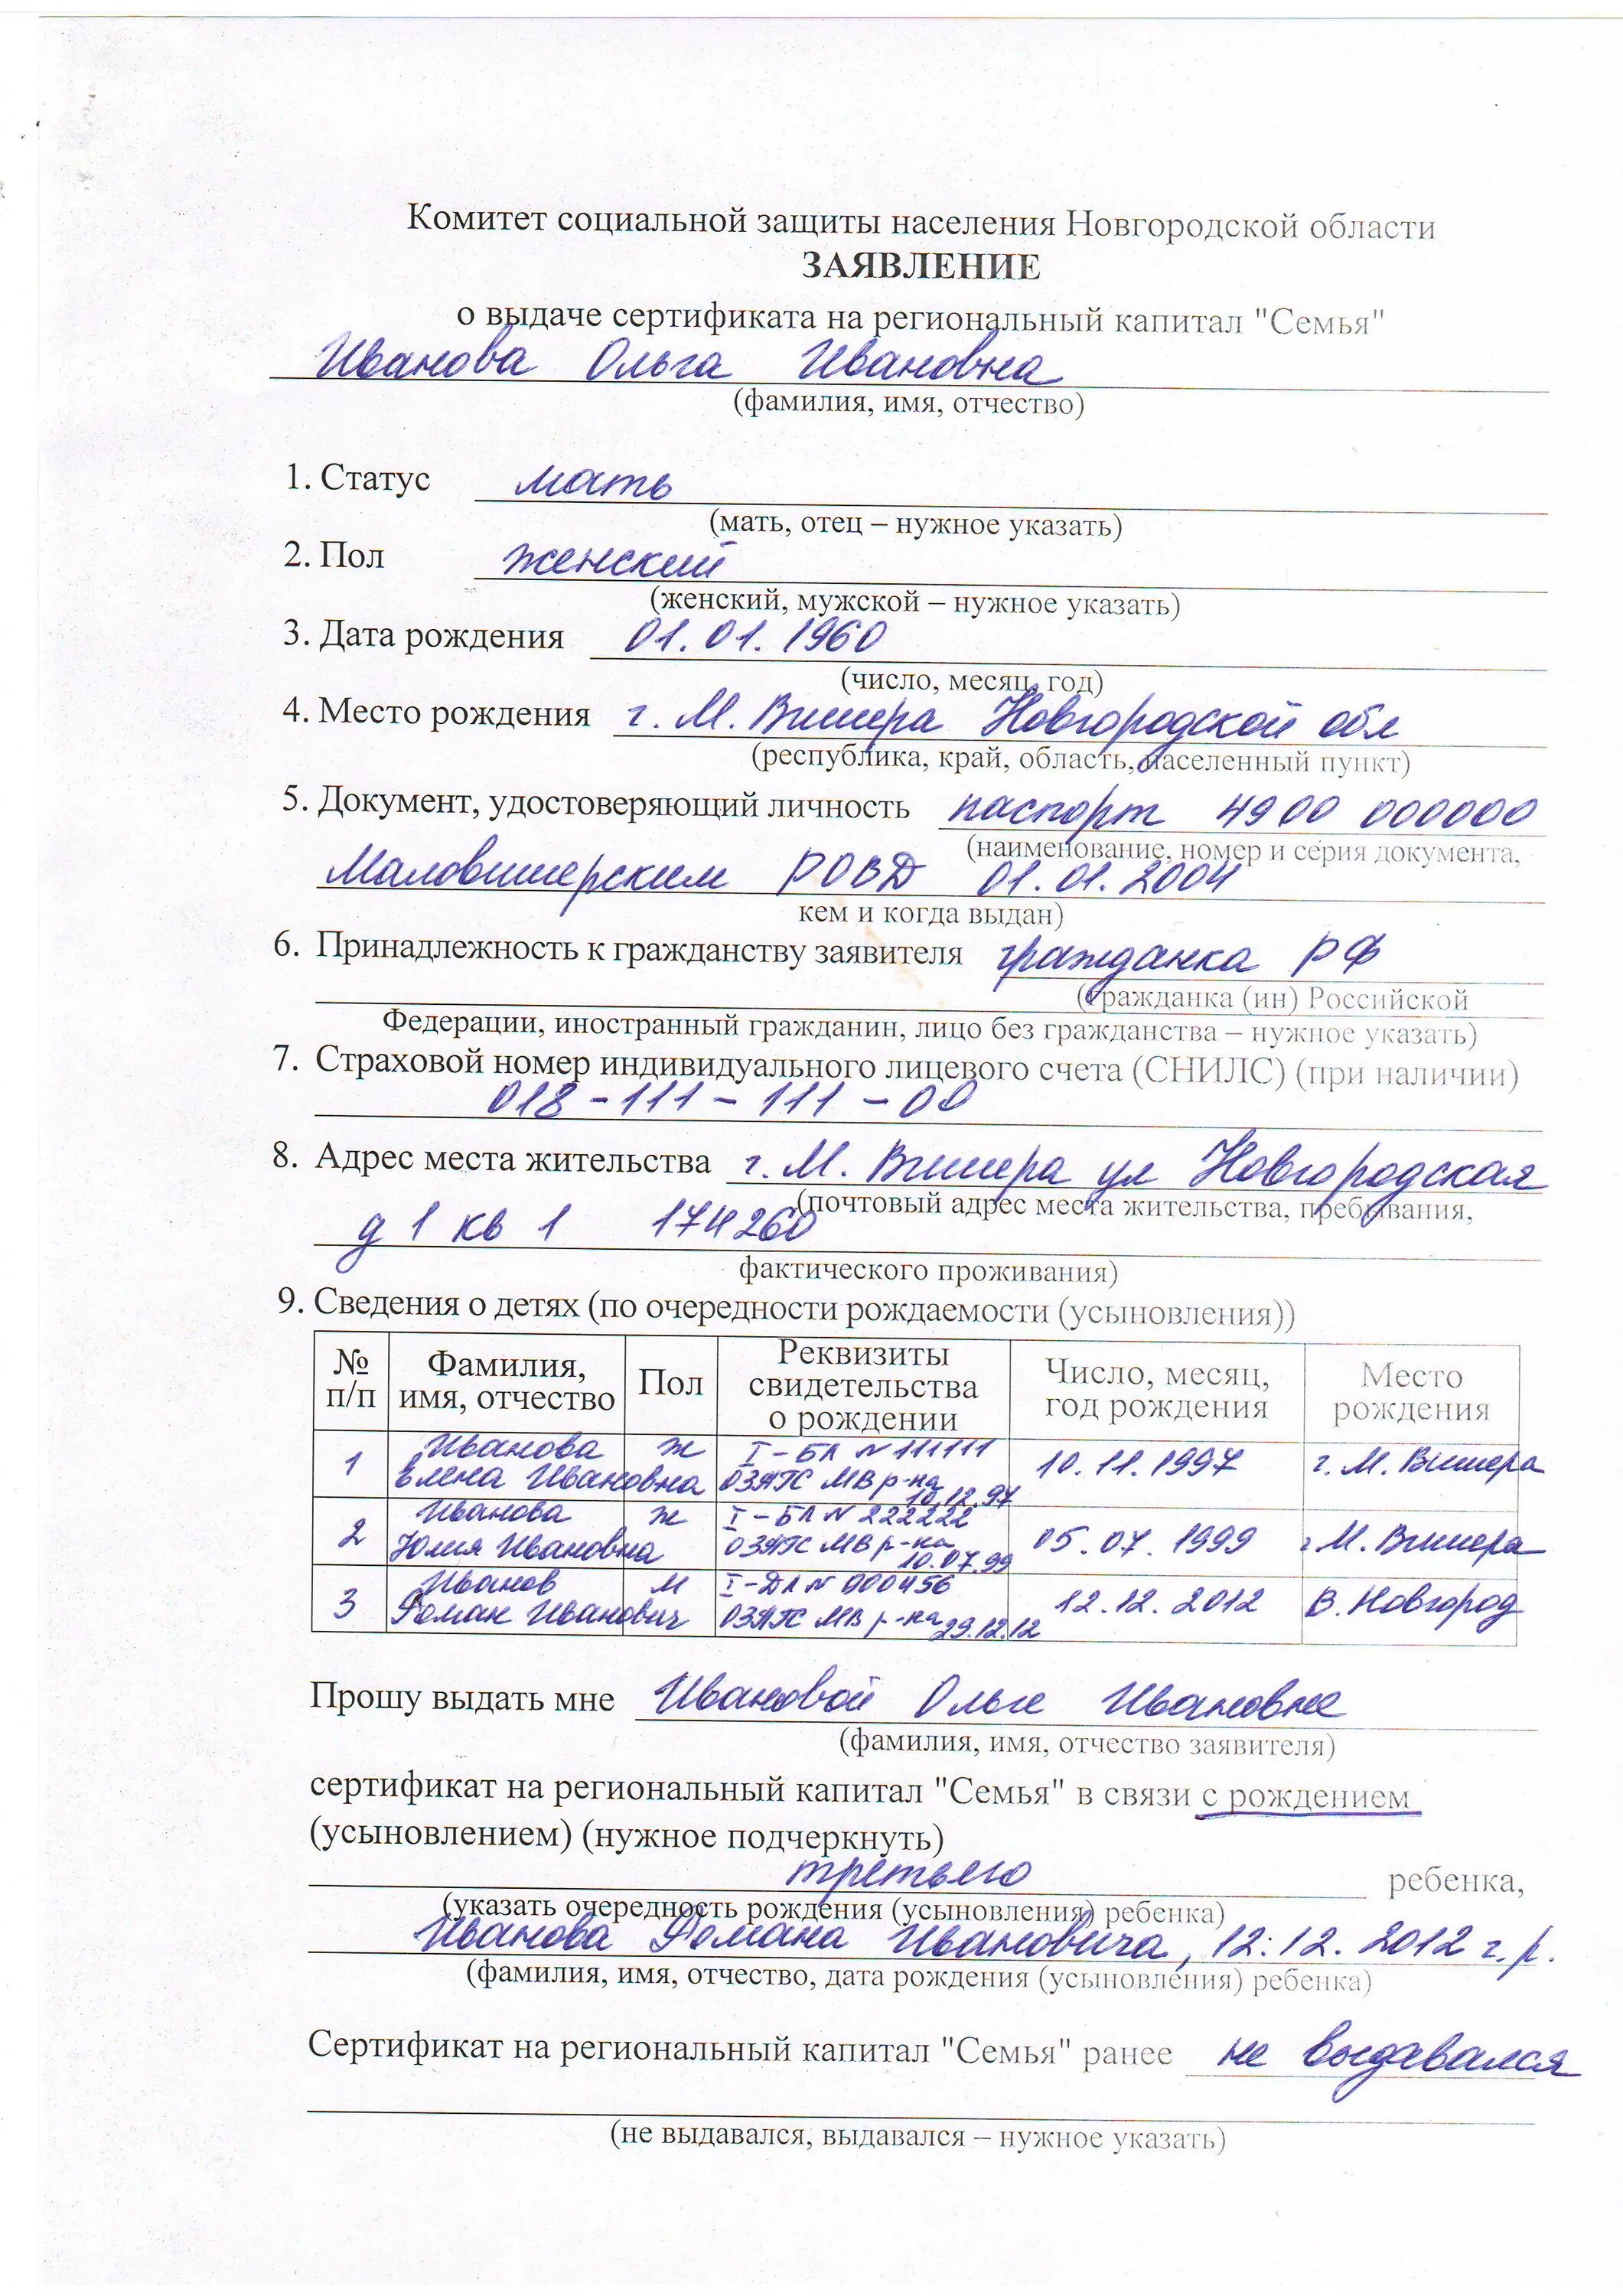 Комитет социальной защиты населения Новгородской области
ЗАЯВЛЕНИЕ
о выдаче сертификата на региональный капитал "Семья"
Иванова Ольга Ивановна
(фамилия, имя, отчество)
1. Статус мать
(мать, отец – нужное указать)
2. Пол женский
(женский, мужской – нужное указать)
3. Дата рождения 01.01.1960
(число, месяц, год)
4. Место рождения г. М. Вишера Новгородской обл
(республика, край, область, населенный пункт)
5. Документ, удостоверяющий личность паспорт 4900 000000
(наименование, номер и серия документа,
Маловишерским РОВД 01.01.2004
кем и когда выдан)
6. Принадлежность к гражданству заявителя гражданка РФ
(гражданка (ин) Российской
Федерации, иностранный гражданин, лицо без гражданства – нужное указать)
7. Страховой номер индивидуального лицевого счета (СНИЛС) (при наличии)
018 – 111 – 111 – 00
8. Адрес места жительства г. М. Вишера ул Новгородская
(почтовый адрес места жительства, пребывания,
д 1 кв 1 174260
фактического проживания)
9. Сведения о детях (по очередности рождаемости (усыновления))
№ п/п Фамилия, имя, отчество Пол Реквизиты свидетельства о рождении Число, месяц, год рождения Место рождения
1 Иванова Елена Ивановна ж I – БЛ N 111111 ОЗАГС МВ р-на 10.12.97 10.11.1997 г. М. Вишера
2 Иванова Юлия Ивановна ж I – БЛ N 222222 ОЗАГС МВ р-на 10.07.99 05.07.1999 г М. Вишера
3 Иванов Роман Иванович м I – ДЛ N 000456 ОЗАГС МВ р-на 29.12.12 12.12.2012 В. Новгород
Прошу выдать мне Ивановой Ольге Ивановне
(фамилия, имя, отчество заявителя)
сертификат на региональный капитал "Семья" в связи с рождением
(усыновлением) (нужное подчеркнуть)
третьего ребенка,
(указать очередность рождения (усыновления) ребенка)
Иванова Романа Ивановича, 12.12.2012 г.р.
(фамилия, имя, отчество, дата рождения (усыновления) ребенка)
Сертификат на региональный капитал "Семья" ранее не выдавался
(не выдавался, выдавался – нужное указать)